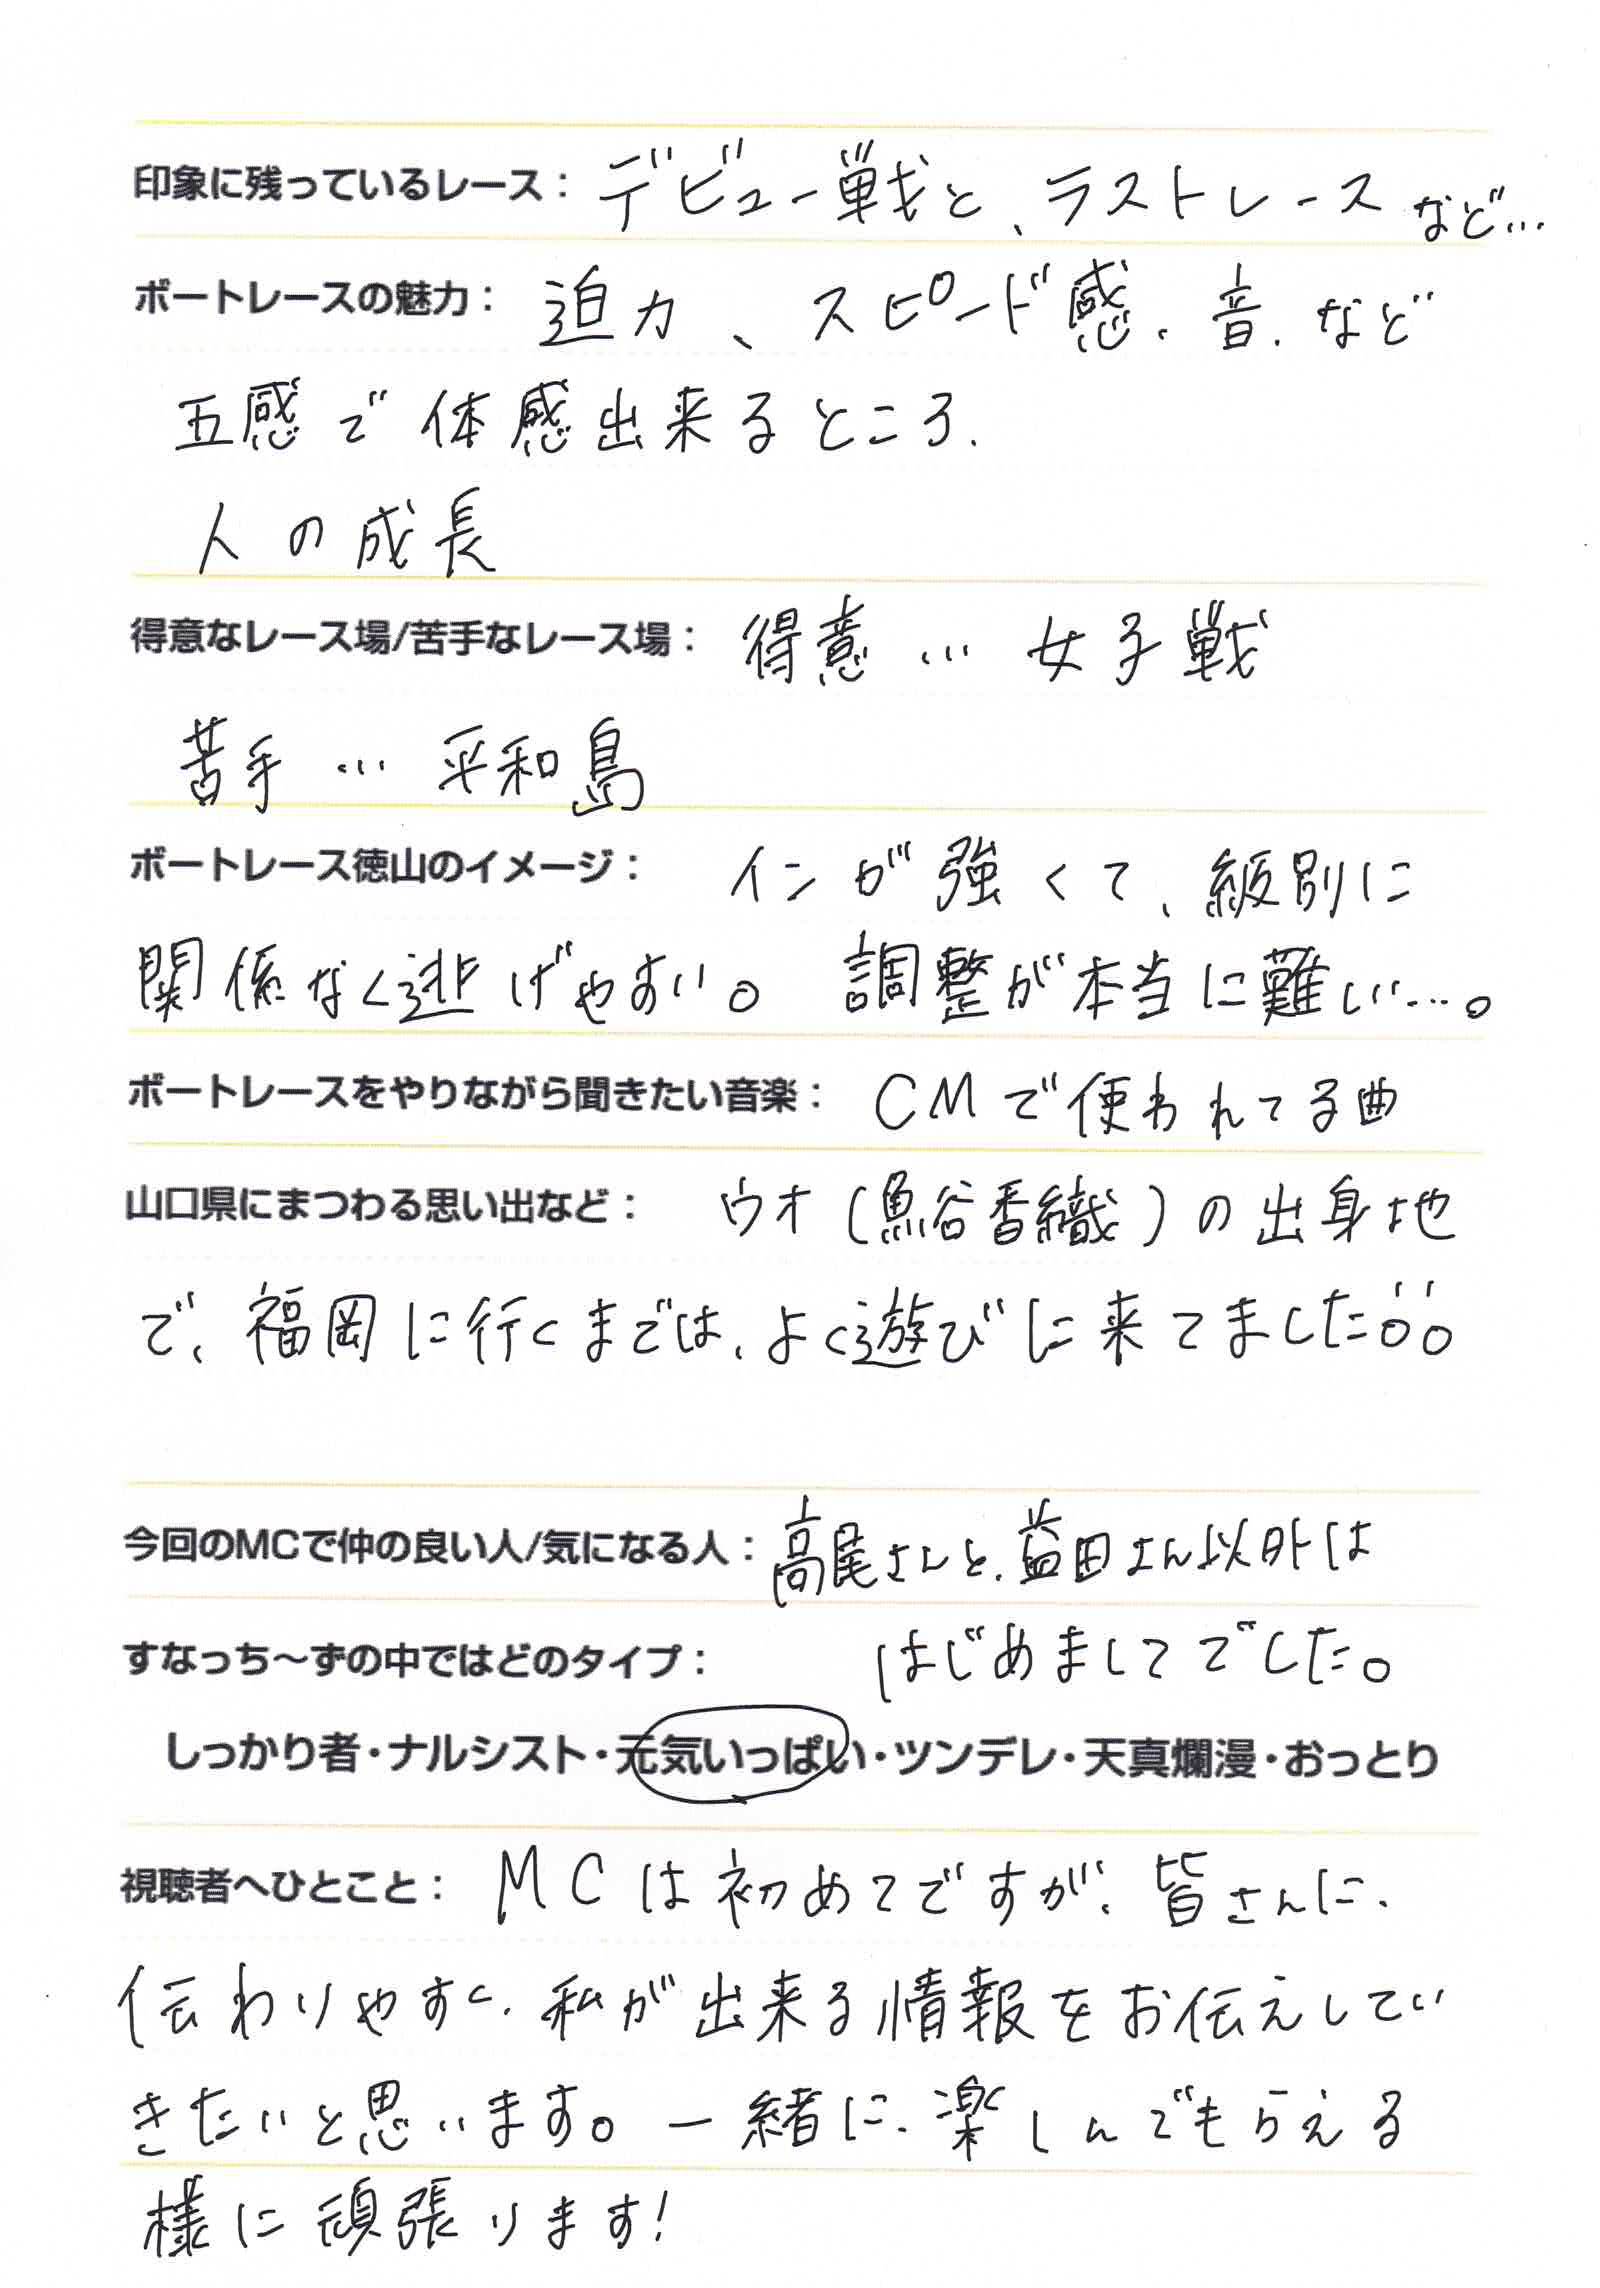 印象に残っているレース： デビュー戦と、ラストレースなど…
ボートレースの魅力： 迫力、スピード感、音、など
五感で体感出来るところ、
人の成長
得意なレース場/苦手なレース場： 得意…女子戦
苦手…平和島
ボートレース徳山のイメージ： インが強くて、級別に
関係なく逃げやすい。調整が本当に難しい…。
ボートレースをやりながら聞きたい音楽： CMで使われてる曲
山口県にまつわる思い出など： ウオ(魚谷香織)の出身地
で、福岡に行くまでは、よく遊びに来てました
今回のMCで仲の良い人/気になる人： 高尾さんと、益田さん以外は
はじめましてでした。
すなっち～ずの中ではどのタイプ：
しっかり者・ナルシスト・元気いっぱい・ツンデレ・天真爛漫・おっとり
視聴者へひとこと： MCは初めてですが、皆さんに、
伝わりやすく、私が出来る情報をお伝えしてい
きたいと思います。一緒に、楽しんでもらえる
様に頑張ります!